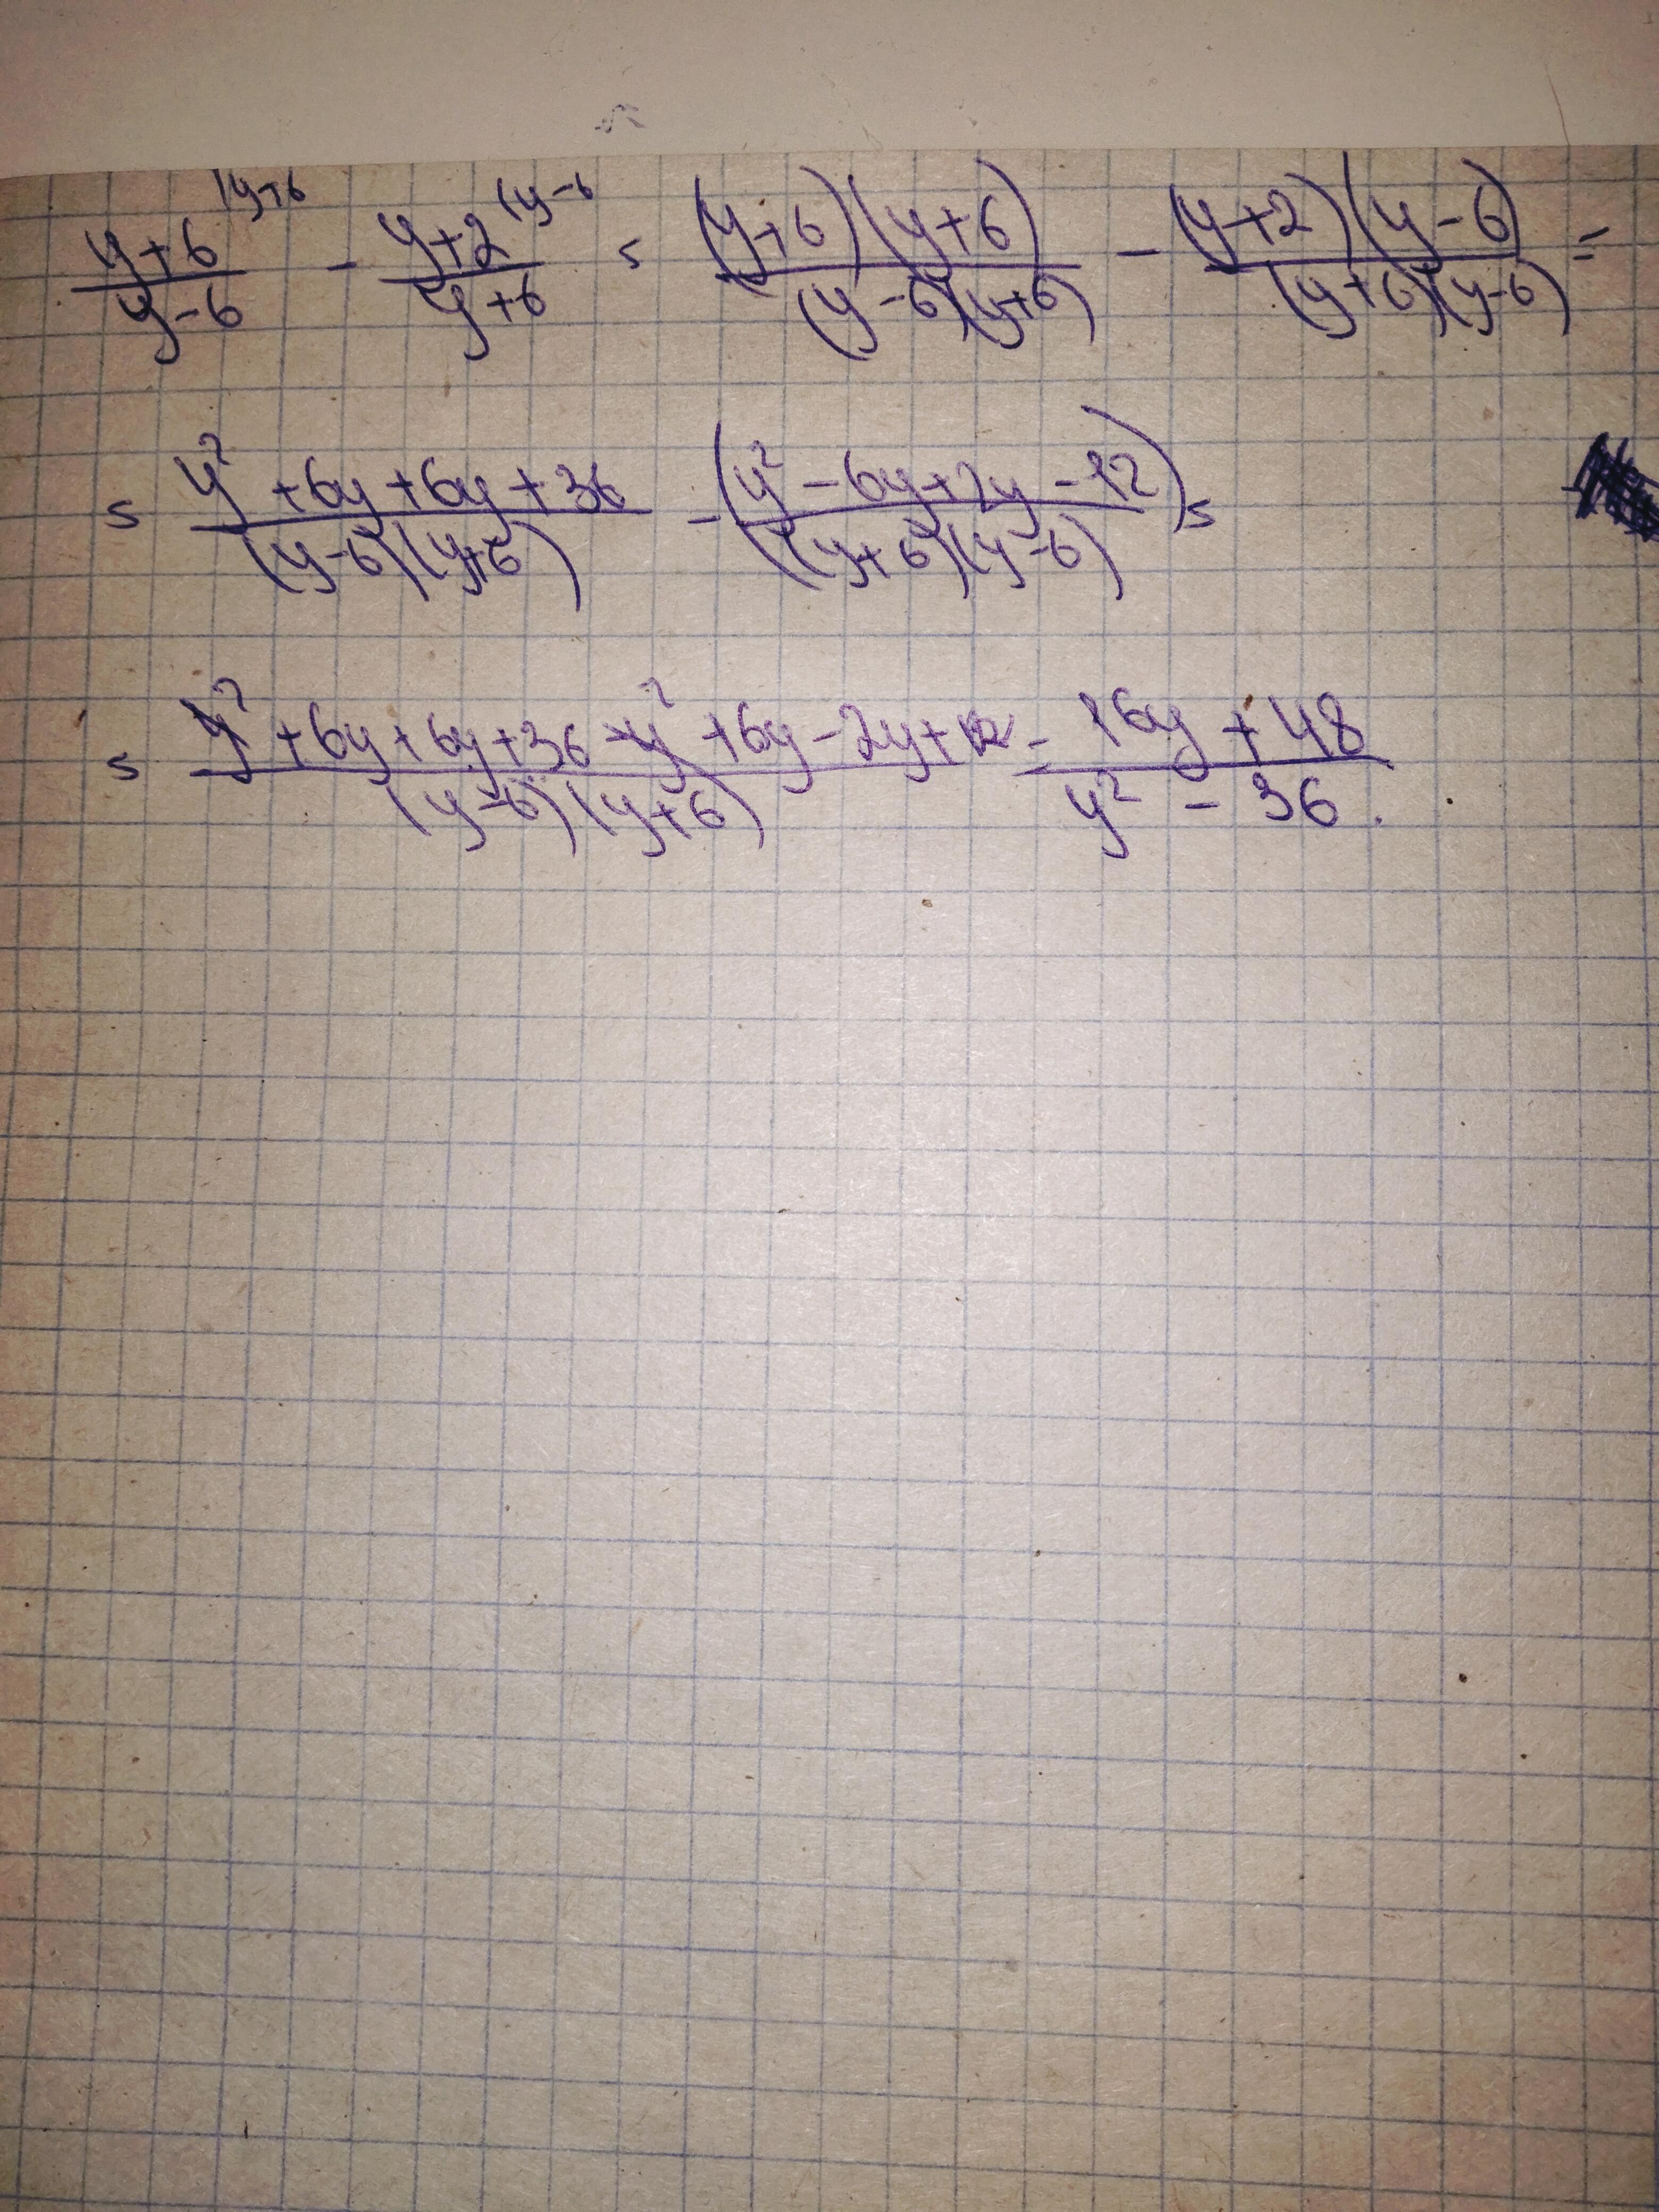 (y+6 (y-6
y+6/y-6 - y+2/y+6 = (y+6)(y+6)/(y-6)(y+6) - (y+2)(y-6)/(y+6)(y-6) =
= y²+6y+6y+36/(y-6)(y+6) - (y²-6y+2y-12/(y+6)(y-6)) =
= y²+6y+6y+36-y²+6y-2y+12/(y-6)(y+6) = 16y+48/y²-36.